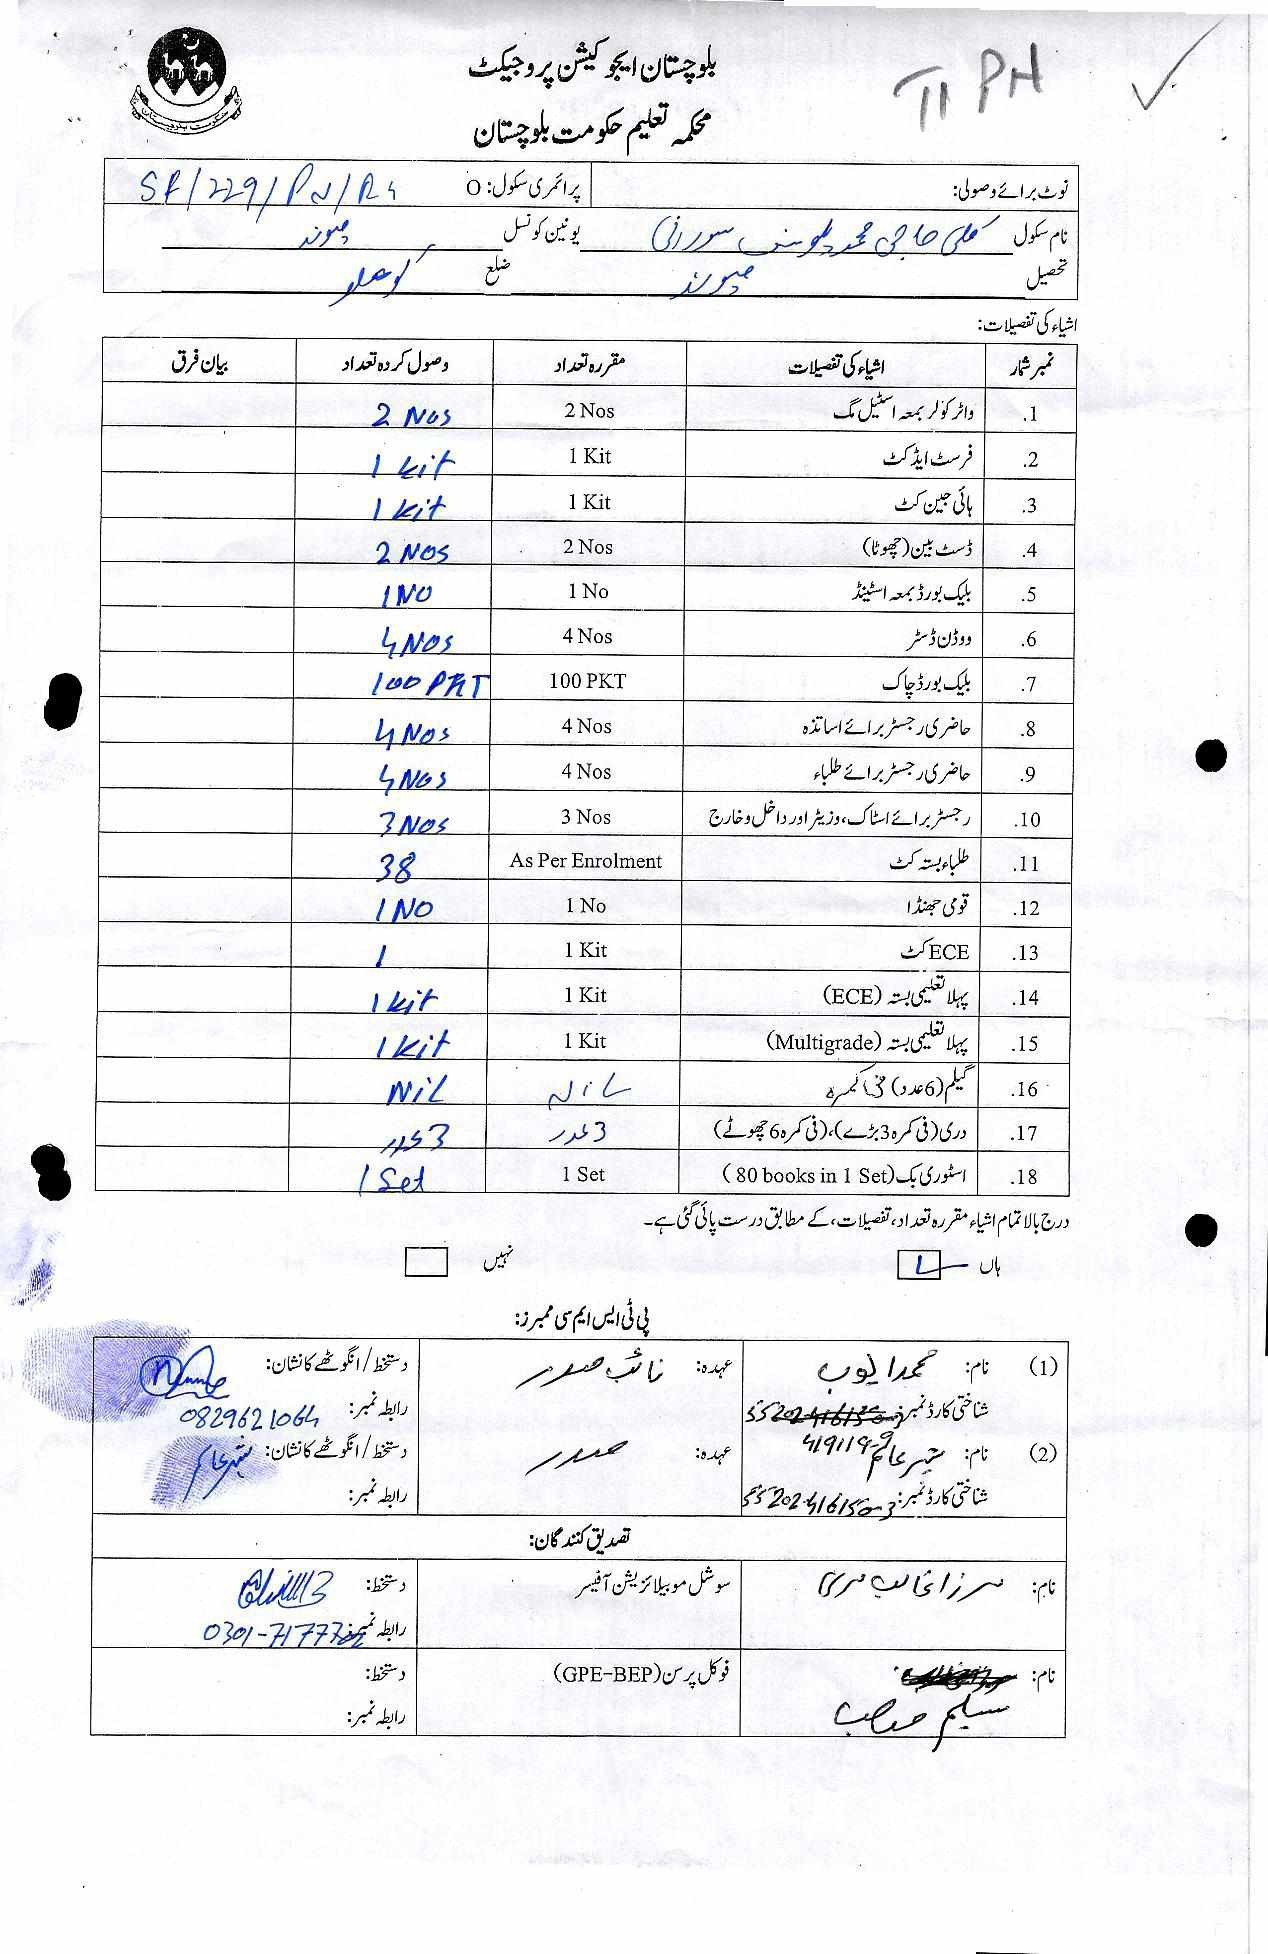 TI PH
بلوچستان ایجوکیشن پروجیکٹ
محکمہ تعلیم حکومت بلوچستان
نوٹ برائے وصولی: پرائمری سکول: O SF/229/PN/R4
نام سکول کلی حاجی محمد سورانی یونین کونسل
تحصیل ضلع کوہلو
اشیاء کی تفصیلات:
نمبر شمار اشیاء کی تفصیلات مقررہ تعداد وصول کردہ تعداد بیان فرق
1. واٹر کولر بمعہ اسٹیل مگ 2 Nos 2 Nos
2. فرسٹ ایڈ کٹ 1 Kit 1 kit
3. ہائی جین کٹ 1 Kit 1 kit
4. ڈسٹ بین (چھوٹا) 2 Nos 2 NOS
5. بلیک بورڈ بمعہ اسٹینڈ 1 No 1 NO
6. ووڈن ڈسٹر 4 Nos 4 NOS
7. بلیک بورڈ چاک 100 PKT 100 PKT
8. حاضری رجسٹر برائے اساتذہ 4 Nos 4 Nos
9. حاضری رجسٹر برائے طلباء 4 Nos 4 NOS
10. رجسٹر برائے اسٹاک، وزیٹر اور داخل و خارج 3 Nos 3 NOS
11. طلباء بستہ کٹ As Per Enrolment 38
12. قومی جھنڈا 1 No 1 NO
13. ECE کٹ 1 Kit 1
14. پہلا تعلیمی بستہ (ECE) 1 Kit 1 kit
15. پہلا تعلیمی بستہ (Multigrade) 1 Kit 1 Kit
16. گیلم (6 عدد) فی کمرہ NiL NiL
17. دری (فی کمرہ 3 بڑے)، (فی کمرہ 6 چھوٹے) 3 عدد 3 عدد
18. اسٹوری بک (80 books in 1 Set) 1 Set 1 Set
درج بالا تمام اشیاء مقررہ تعداد، تفصیلات، کے مطابق درست پائی گئی ہے۔
ہاں نہیں
پی ٹی ایس ایم سی ممبرز:
(1) نام: محمد ایوب عہدہ: نائب صدر دستخط / انگوٹھے کا نشان:
شناختی کارڈ نمبر: رابطہ نمبر: 0829621064
(2) نام: عہدہ: صدر دستخط / انگوٹھے کا نشان:
شناختی کارڈ نمبر: رابطہ نمبر:
تصدیق کنندگان:
نام: سوشل موبیلائزیشن آفیسر دستخط:
رابطہ نمبر:
نام: فوکل پرسن (GPE-BEP) دستخط:
سلیم صاحب رابطہ نمبر: